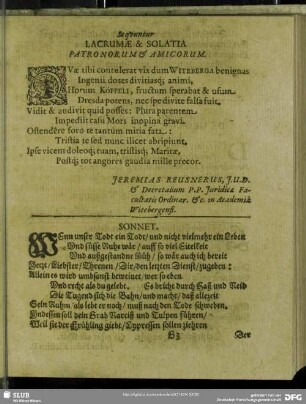 Seqvuntur
LACRUMÆ & SOLATIA
PATRONORUM & AMICORUM.
QVæ tibi contulerat vix dum WITEBERGA benignas
Ingenii dotes divitiasq; animi,
Horum KÖPPELI, fructum sperabat & usum
Dresda potens, nec spe divite falsa fuit.
Vidit & audivit quid posses: Plura parentem
Impediit casu Mors inopina gravi.
Ostendêre foro te tantùm miria fata:
Tristia te sed nunc ilicet abripiunt.
Ipse vicem doleoq; tuam, tristisq; Maritæ,
Postq; tot angores gaudia mille precor.
JEREMIAS REUSNERUS, J.U.D.
& Decretalium P.P. Juridicæ Fa-
cultatis Ordinar. &c. in Academiâ
Witebergensi.
SONNET.
WEnn unser Todt ein Todt/ und nicht vielmehr ein Leben
Und süsse Ruhe wär/ auff so viel Eitelkeit
Und außgestandne Müh/ so wär auch ich bereit
Jetzt/ Liebster/ Threnen/ Dir/ den letzten Dienst/ zugeben:
Allein es wird umbsonst beweinet/ wer so eben
Und recht als du gelebt. Es bricht durch Haß und Neid
Die Tugend sich die Bahn/ und macht/ daß allezeit
Sein Ruhm/ als lebt er noch/ muß nach dem Tode schweben.
Indessen soll dein Grab Narciß und Tulpen führen/
Weil sie der Frühling giebt/ Cypressen sollen ziehren
Der
SLUB
Wir führen Wissen.
gefördert von der
Deutschen Forschungsgemeinschaft
DFG